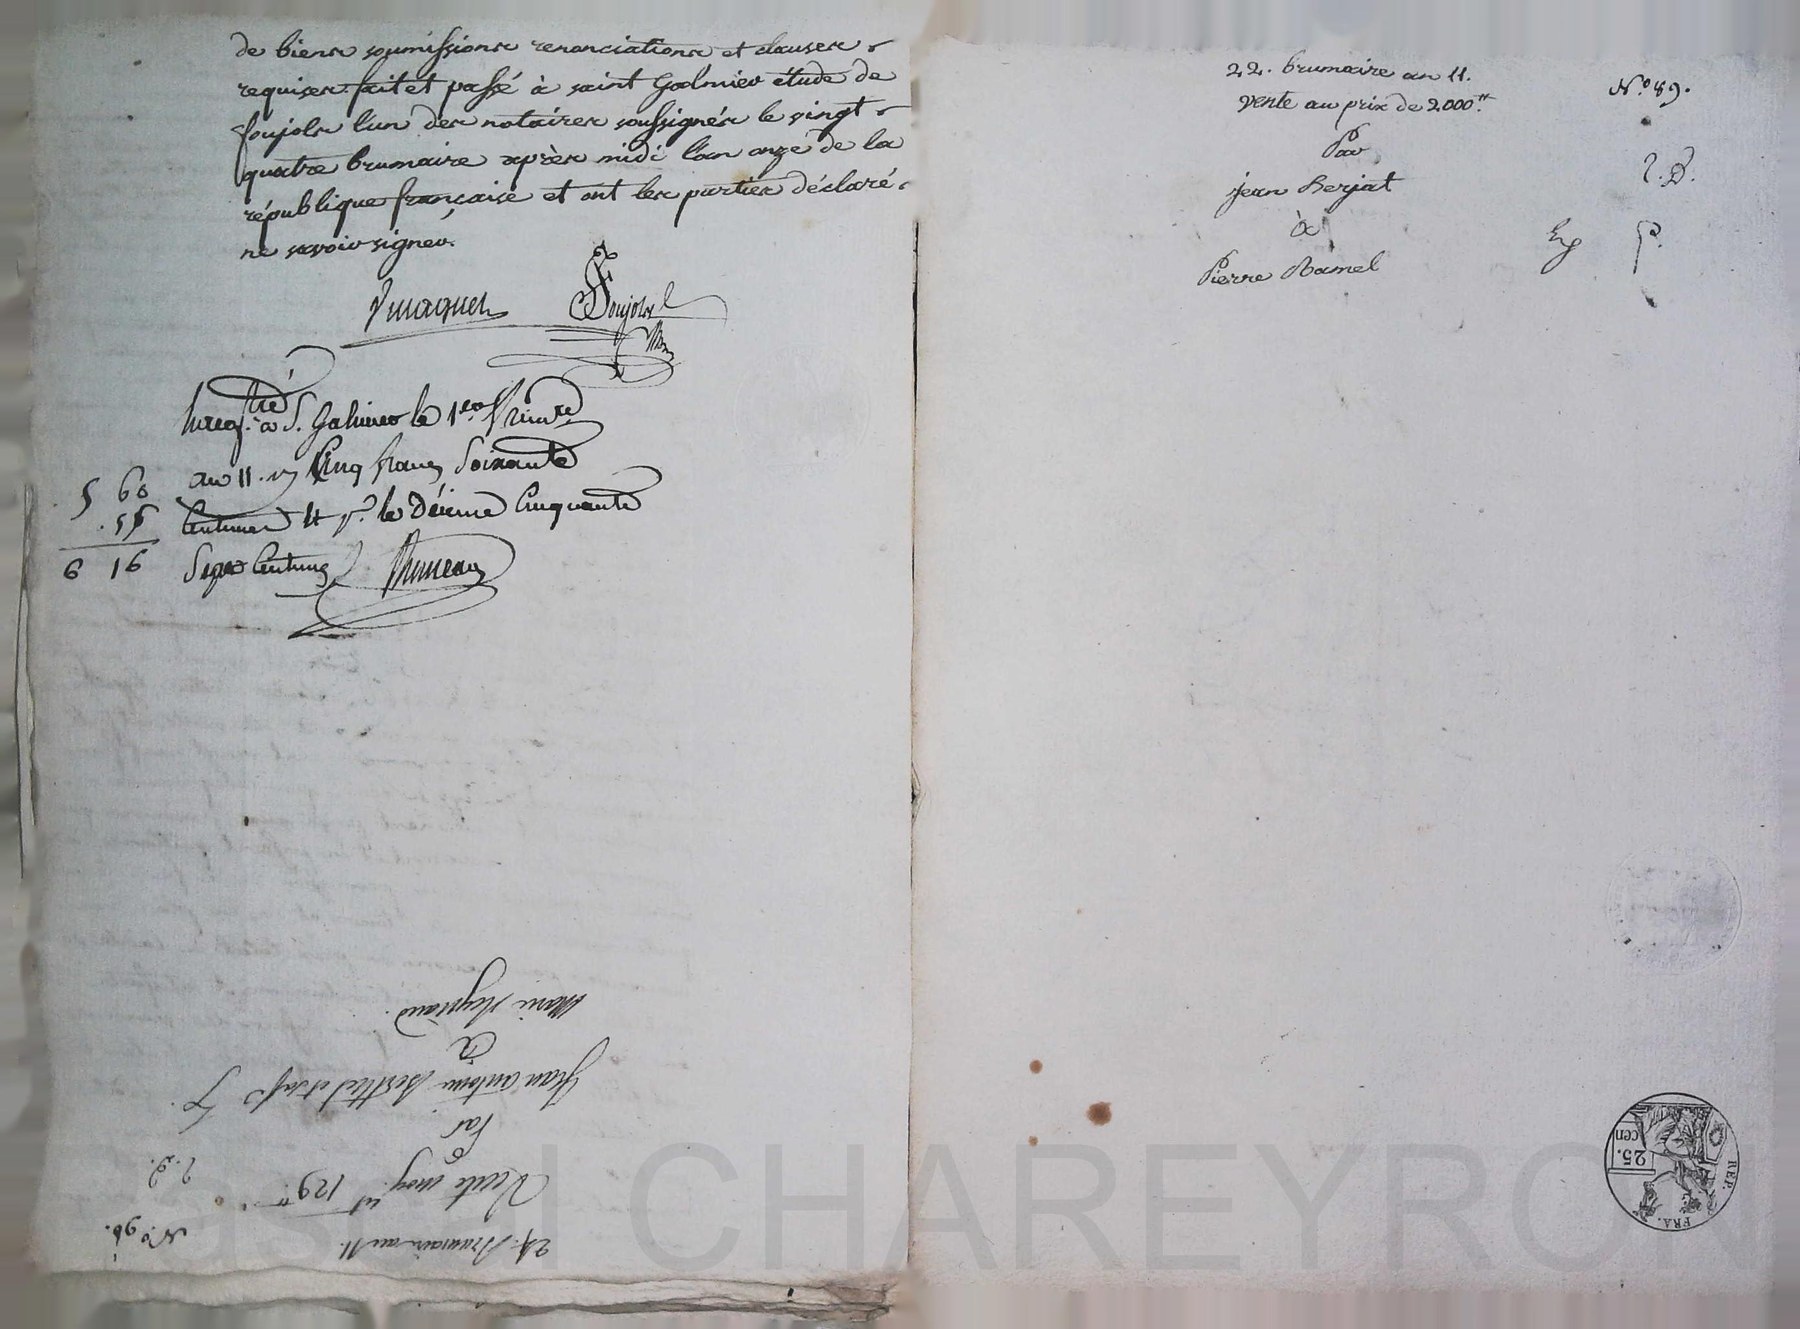 de biens soumissions renonciations et clauses
requises fait et passé à saint Galmier étude de
soujols l'un des notaires soussignés le vingt
quatre brumaire après midi l'an onze de la
république française et ont les parties déclaré
ne savoir signer.
Soujols
Enreg.tré à S. Galmier le 1er frimre
an 11. Cinq francs Soixante
5 60
centimes et pr. le Décime Cinquante
.56
Six centimes
6 16
Marie
à
Jean antoine
Par
Vente moy.t 129 tt
2.D.
24. Brumaire an 11.
N.o 90.
22. brumaire an 11.
N.o 89.
vente au prix de 2.000 tt
Par
2.D.
jean Berjat
à
Exp
P.
Pierre Ramel
REP. FRA.
25. cen
ascal CHAREYRON